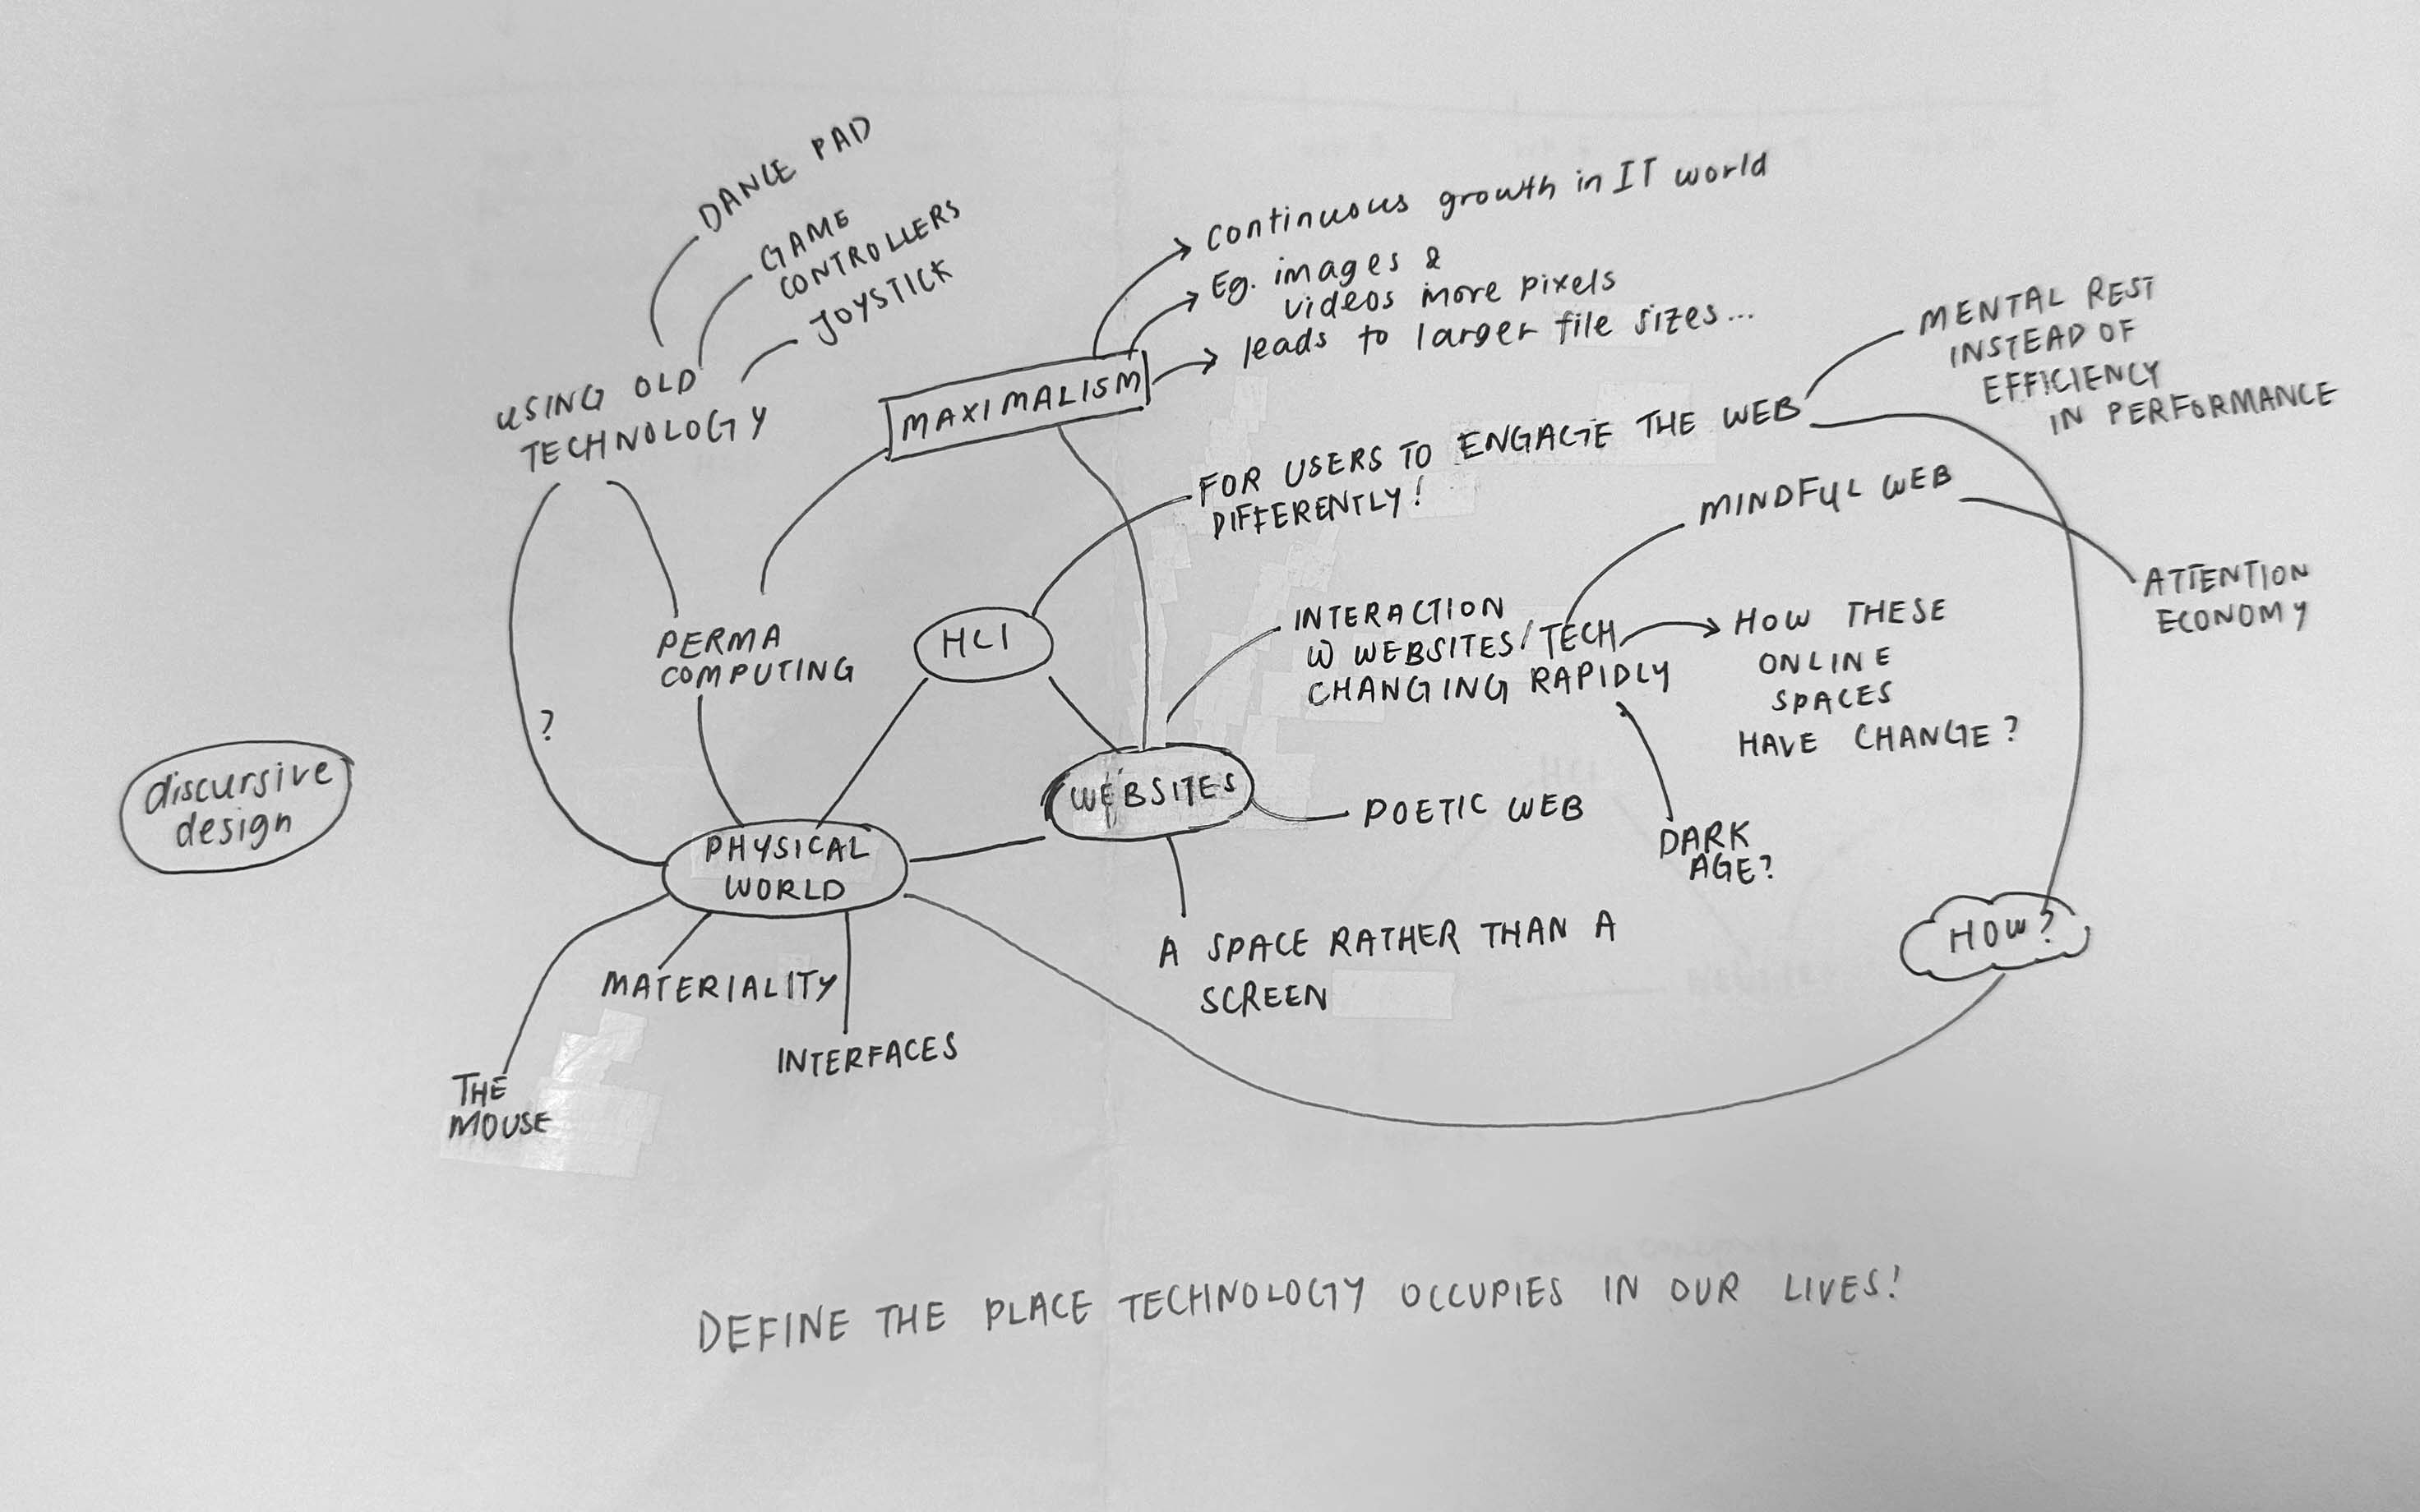 DANCE PAD
GAME
CONTROLLERS
JOYSTICK
USING OLD
TECHNOLOGY
continuous growth in IT world
Eg. images &
videos more pixels
leads to larger file sizes...
MAXIMALISM
MENTAL REST
INSTEAD OF
EFFICIENCY
IN PERFORMANCE
FOR USERS TO ENGAGE THE WEB
DIFFERENTLY!
MINDFUL WEB
ATTENTION
ECONOMY
PERMA
COMPUTING
HCI
INTERACTION
W WEBSITES/TECH
CHANGING RAPIDLY
HOW THESE
ONLINE
SPACES
HAVE CHANGE?
?
discursive
design
WEBSITES
POETIC WEB
DARK
AGE?
PHYSICAL
WORLD
A SPACE RATHER THAN A
SCREEN
HOW?
MATERIALITY
INTERFACES
THE
MOUSE
DEFINE THE PLACE TECHNOLOGY OCCUPIES IN OUR LIVES!